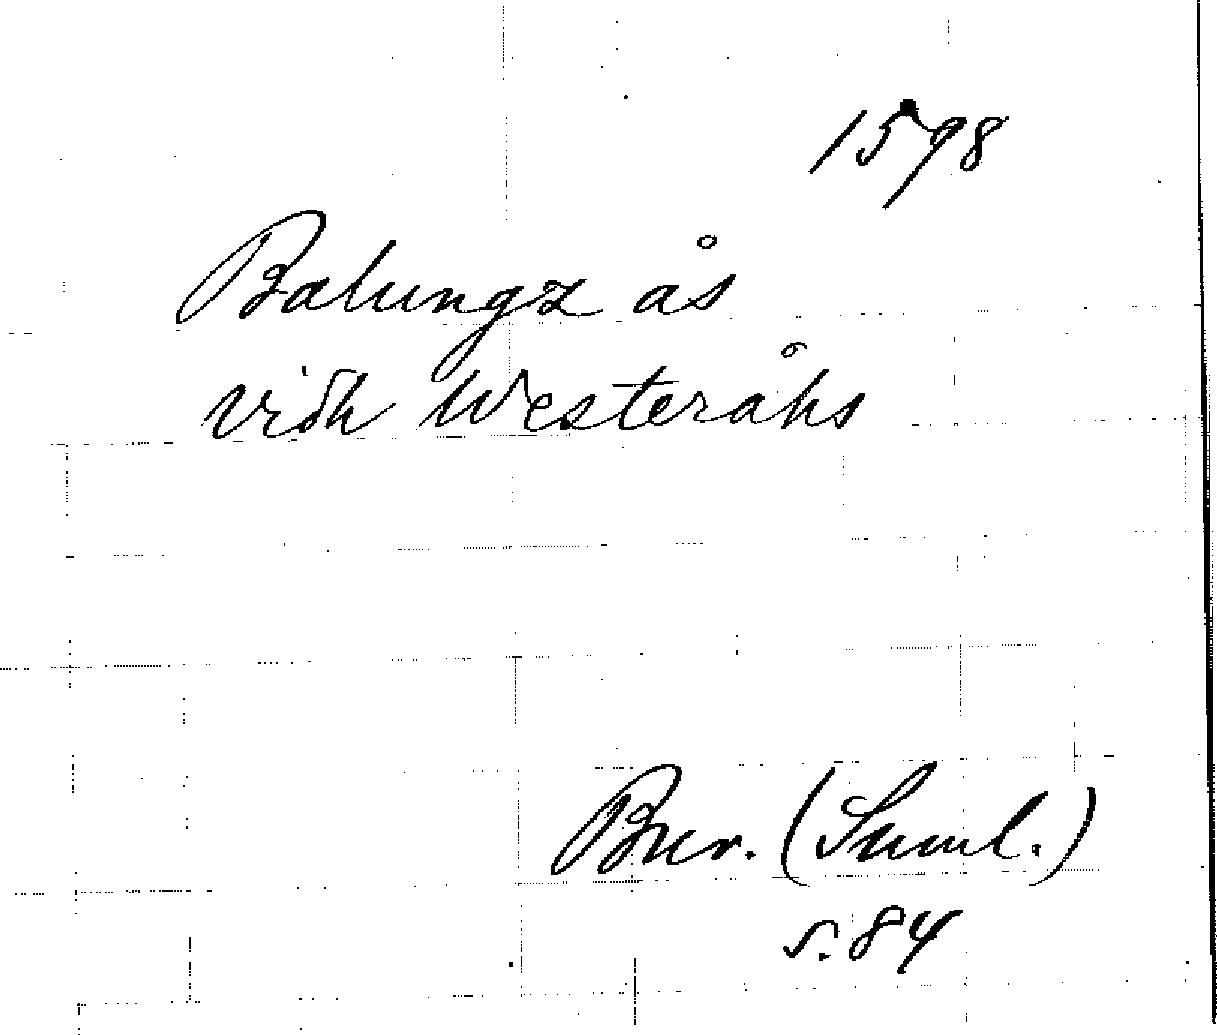 1598
Balungz ås
vidh Westeråhs
Bur. (Suml.)
s. 84